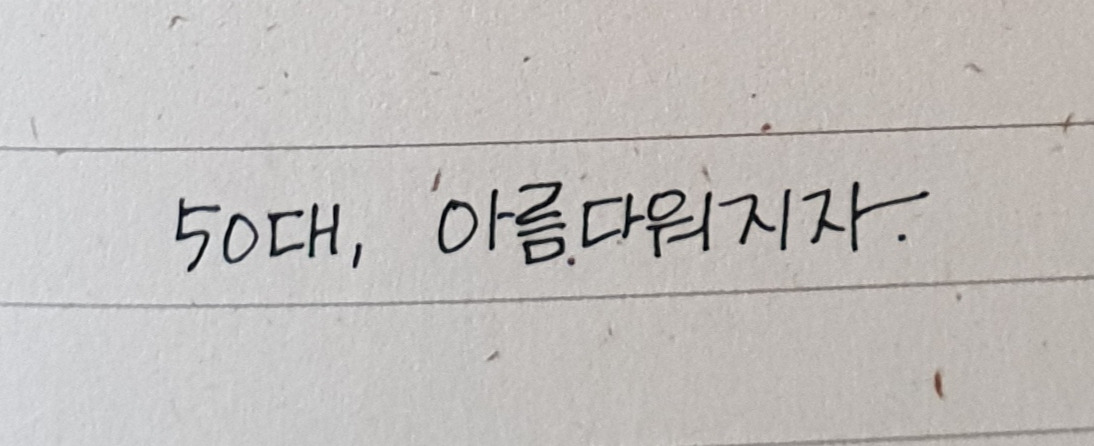 50대, 아름다워지자.